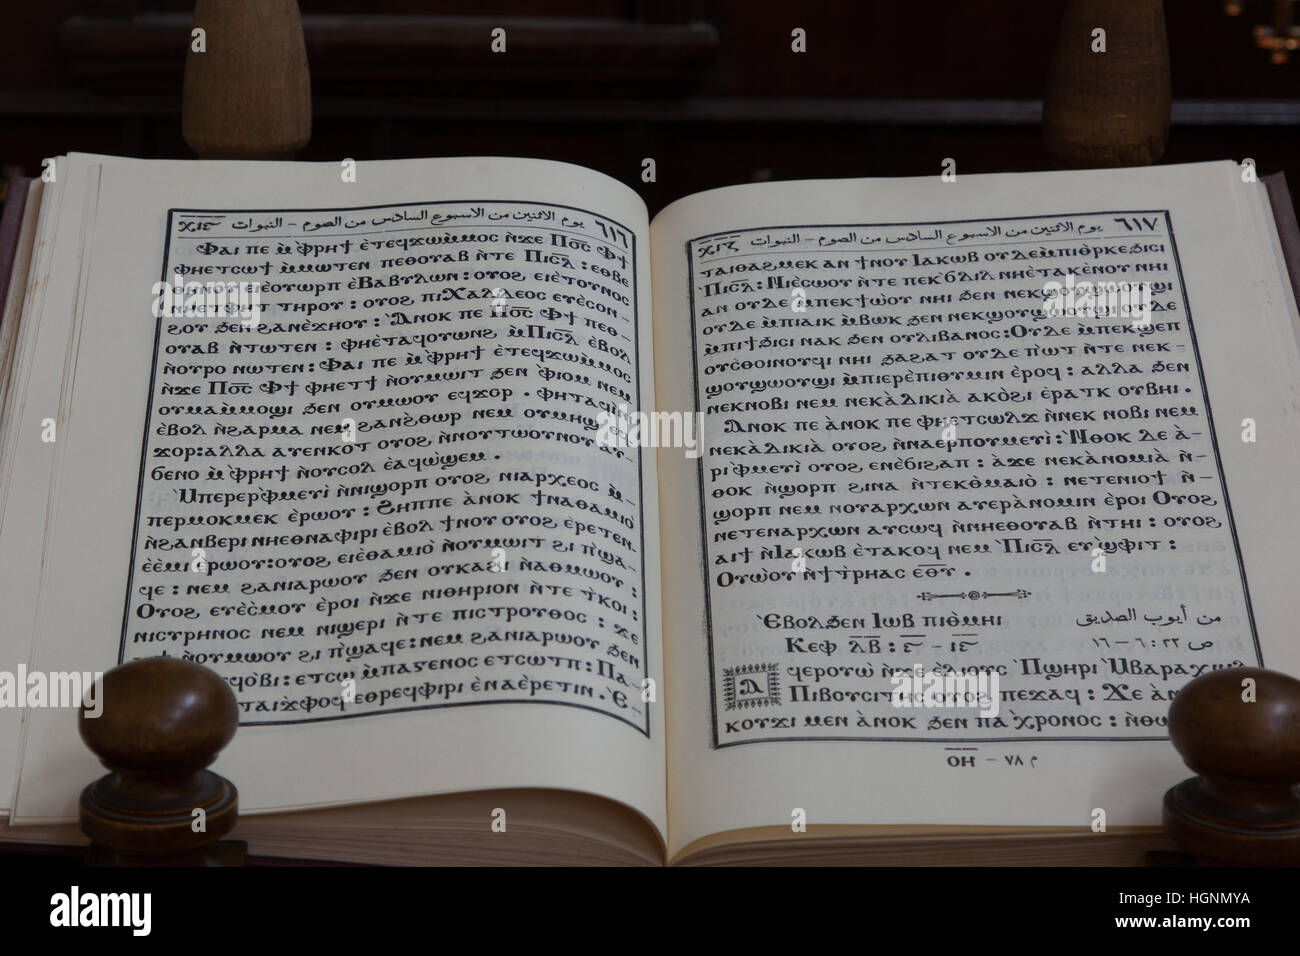 ⲭ̅ⲓ̅ⲋ̅ يوم الاثنين من الاسبوع السادس من الصوم - النبوات ٦١٦
Ⲫⲁⲓ ⲡⲉ ⲙ̀ⲫⲣⲏϯ ⲉ̀ⲧⲉϥϫⲱⲙ̀ⲙⲟⲥ ⲛ̀ϫⲉ Ⲡⲟ̅ⲥ̅ Ⲫϯ
ⲫⲏⲉⲧⲥⲱϯ ⲙ̀ⲙⲱⲧⲉⲛ ⲡⲉⲑⲟⲩⲁⲃ ⲛ̀ⲧⲉ Ⲡⲓⲥ̅ⲗ̅: ⲉⲑⲃⲉ
ⲑⲏⲛⲟⲩ ⲉⲓⲉ̀ⲟⲩⲱⲣⲡ ⲉ̀Ⲃⲁⲃⲩⲗⲱⲛ: ⲟⲩⲟϩ ⲉⲓⲉ̀ⲧⲟⲩⲛⲟⲥ
ⲛⲏⲉⲧⲫⲏⲧ ⲧⲏⲣⲟⲩ: ⲟⲩⲟϩ ⲡⲓⲬⲁⲗⲇⲉⲟⲥ ⲉⲩⲉ̀ⲥⲟⲛ-
ϩⲟⲩ ϧⲉⲛ ϩⲁⲛⲉ̀ϫⲏⲟⲩ: Ⲁⲛⲟⲕ ⲡⲉ Ⲡⲟ̅ⲥ̅ Ⲫϯ ⲡⲉⲑ-
ⲟⲩⲁⲃ ⲛ̀ⲧⲱⲧⲉⲛ: ⲫⲏⲉ̀ⲧⲁϥⲟⲩⲱⲛϩ ⲙ̀Ⲡⲓⲥ̅ⲗ̅ ⲉ̀ⲃⲟⲗ
ⲛ̀ⲟⲩⲣⲟ ⲛⲱⲧⲉⲛ: Ⲫⲁⲓ ⲡⲉ ⲙ̀ⲫⲣⲏϯ ⲉ̀ⲧⲉϥϫⲱⲙ̀ⲙⲟⲥ
ⲛ̀ϫⲉ Ⲡⲟ̅ⲥ̅ Ⲫϯ ⲫⲏⲉⲧϯ ⲛ̀ⲟⲩⲙⲱⲓⲧ ϧⲉⲛ ⲫⲓⲟⲙ ⲛⲉⲙ
ⲟⲩⲙⲁⲙ̀ⲙⲟϣⲓ ϧⲉⲛ ⲟⲩⲙⲱⲟⲩ ⲉϥϫⲟⲣ . ⲫⲏⲧⲁϥⲓⲛⲓ
ⲉ̀ⲃⲟⲗ ⲛ̀ϩⲁⲣⲙⲁ ⲛⲉⲙ ϩⲁⲛϩ̀ⲑⲱⲣ ⲛⲉⲙ ⲟⲩⲙⲏϣ ⲉϥ
ϫⲟⲣ: ⲁⲗⲗⲁ ⲁⲩⲉⲛⲕⲟⲧ ⲟⲩⲟϩ ⲛ̀ⲛⲟⲩⲧⲱⲟⲩⲛⲟⲩ ⲁⲩ-
ϭⲉⲛⲟ ⲙ̀ⲫⲣⲏϯ ⲛ̀ⲟⲩⲥⲟⲗ ⲉⲁϥⲱ̀ϣⲉⲙ .
Ⲙ̀ⲡⲉⲣⲉⲣⲫⲙⲉⲩⲓ̀ ⲛ̀ⲛⲓϣⲟⲣⲡ ⲟⲩⲟϩ ⲛⲓⲁⲣⲭⲉⲟⲥ ⲙ̀-
ⲡⲉⲣⲙⲟⲕⲙⲉⲕ ⲉ̀ⲣⲱⲟⲩ: Ϩⲏⲡⲡⲉ ⲁ̀ⲛⲟⲕ ϯⲛⲁⲑⲁⲙⲓⲟ̀
ⲛ̀ϩⲁⲛⲃⲉⲣⲓ ⲛⲏⲉⲑⲛⲁⲫⲓⲣⲓ ⲉ̀ⲃⲟⲗ ϯⲛⲟⲩ ⲟⲩⲟϩ ⲉⲣⲉⲧⲉⲛ-
ⲉ̀ⲉ̀ⲙⲓ ⲉ̀ⲣⲱⲟⲩ: ⲟⲩⲟϩ ⲉⲓⲉ̀ⲑⲁⲙⲓⲟ̀ ⲛ̀ⲟⲩⲙⲱⲓⲧ ϩⲓ ⲡ̀ϣⲁ-
ϥⲉ: ⲛⲉⲙ ϩⲁⲛⲓⲁⲣⲱⲟⲩ ϧⲉⲛ ⲟⲩⲕⲁϩⲓ ⲛ̀ⲁⲑⲙⲱⲟⲩ:
Ⲟⲩⲟϩ ⲉⲩⲉ̀ⲥ̀ⲙⲟⲩ ⲉ̀ⲣⲟⲓ ⲛ̀ϫⲉ ⲛⲓⲑⲏⲣⲓⲟⲛ ⲛ̀ⲧⲉ ⲧ̀ⲕⲟⲓ:
ⲛⲓⲥⲩⲣⲏⲛⲟⲥ ⲛⲉⲙ ⲛⲓϣⲉⲣⲓ ⲛ̀ⲧⲉ ⲡⲓⲥⲧⲣⲟⲩⲑⲟⲥ: ϫⲉ
ⲛ̀ⲟⲩⲙⲱⲟⲩ ϩⲓ ⲡ̀ϣⲁϥⲉ: ⲛⲉⲙ ϩⲁⲛⲓⲁⲣⲱⲟⲩ ϧⲉⲛ
ⲉ̀ⲧⲥⲱ ⲙ̀ⲡⲁⲅⲉⲛⲟⲥ ⲉⲧⲥⲱⲧⲡ: Ⲡⲁ-
ⲉⲑⲣⲉϥⲫⲓⲣⲓ ⲉ̀ⲛⲁⲁ̀ⲣⲉⲧⲏⲛ . Ⲉ̀-
ⲭ̅ⲓ̅ⲍ̅ يوم الاثنين من الاسبوع السادس من الصوم - النبوات ٦١٧
ⲧⲁⲓⲑⲁϩⲙⲉⲕ ⲁⲛ ϯⲛⲟⲩ Ⲓⲁⲕⲱⲃ ⲟⲩⲇⲉ ⲙ̀ⲡⲓⲑⲣⲉⲕϧⲓⲥⲓ
Ⲡⲓⲥ̅ⲗ̅: Ⲛⲓⲉ̀ⲥⲱⲟⲩ ⲛ̀ⲧⲉ ⲡⲉⲕϭⲗⲓⲗ ⲛⲏⲉ̀ⲧⲁⲕⲉⲛⲟⲩ ⲛⲏⲓ
ⲁⲛ ⲟⲩⲇⲉ ⲙ̀ⲡⲉⲕϯⲱ̀ⲟⲩ ⲛⲏⲓ ϧⲉⲛ ⲛⲉⲕϣⲟⲩϣⲱⲟⲩϣⲓ
ⲟⲩⲇⲉ ⲙ̀ⲡⲓⲁⲓⲕ ⲙ̀ⲃⲱⲕ ϧⲉⲛ ⲛⲉⲕϣⲟⲩϣⲱⲟⲩϣⲓ ⲟⲩⲇⲉ
ⲙ̀ⲡⲓϯϧⲓⲥⲓ ⲛⲁⲕ ϧⲉⲛ ⲟⲩⲗⲓⲃⲁⲛⲟⲥ: Ⲟⲩⲇⲉ ⲙ̀ⲡⲉⲕϣⲉⲡ
ⲟⲩⲥ̀ⲑⲟⲓⲛⲟⲩϥⲓ ⲛⲏⲓ ϧⲁϩⲁⲧ ⲟⲩⲇⲉ ⲡ̀ⲱⲧ ⲛ̀ⲧⲉ ⲛⲉⲕ-
ϣⲟⲩϣⲱⲟⲩϣⲓ ⲙ̀ⲡⲓⲉⲣⲉ̀ⲡⲓⲑⲩⲙⲓⲛ ⲉ̀ⲣⲟϥ: ⲁⲗⲗⲁ ϧⲉⲛ
ⲛⲉⲕⲛⲟⲃⲓ ⲛⲉⲙ ⲛⲉⲕⲁ̀ⲇⲓⲕⲓⲁ ⲁⲕⲟ̀ϩⲓ ⲉ̀ⲣⲁⲧⲕ ⲟⲩⲃⲏⲓ .
Ⲁⲛⲟⲕ ⲡⲉ ⲁ̀ⲛⲟⲕ ⲡⲉ ⲫⲏⲉⲧⲥⲱⲗϫ ⲛ̀ⲛⲉⲕ ⲛⲟⲃⲓ ⲛⲉⲙ
ⲛⲉⲕⲁ̀ⲇⲓⲕⲓⲁ̀ ⲟⲩⲟϩ ⲛ̀ⲛⲁⲉⲣⲡⲟⲩⲙⲉⲩⲓ̀: Ⲛ̀ⲑⲟⲕ ⲇⲉ ⲁ̀-
ⲣⲓⲫ̀ⲙⲉⲩⲓ̀ ⲟⲩⲟϩ ⲉⲛⲉ̀ϭⲓϩⲁⲡ: ⲁ̀ϫⲉ ⲛⲉⲕⲁ̀ⲛⲟⲙⲓⲁ̀ ⲛ̀-
ⲑⲟⲕ ⲛ̀ϣⲟⲣⲡ ϩⲓⲛⲁ ⲛ̀ⲧⲉⲕⲑ̀ⲙⲁⲓⲟ̀: ⲛⲉⲧⲉⲛⲓⲟϯ ⲛ̀-
ϣⲟⲣⲡ ⲛⲉⲙ ⲛⲟⲩⲁⲣⲭⲱⲛ ⲁⲩⲉⲣⲁ̀ⲛⲟⲙⲓⲛ ⲉ̀ⲣⲟⲓ Ⲟⲩⲟϩ
ⲛⲉⲧⲉⲛⲁⲣⲭⲱⲛ ⲁⲩⲥⲱϥ ⲛ̀ⲛⲏⲉⲑⲟⲩⲁⲃ ⲛ̀ⲧⲏⲓ: ⲟⲩⲟϩ
ⲁⲓϯ ⲛ̀Ⲓⲁⲕⲱⲃ ⲉ̀ⲧⲁⲕⲟϥ ⲛⲉⲙ Ⲡⲓⲥ̅ⲗ̅ ⲉⲩϣ̀ⲫⲓⲧ:
Ⲟⲩⲱ̀ⲟⲩ ⲛ̀ϯⲧ̀ⲣⲓⲁⲥ ⲉ̅ⲑ̅ⲩ̅ .
Ⲉ̀ⲃⲟⲗϧⲉⲛ Ⲓⲱⲃ ⲡⲓⲑ̀ⲙⲏⲓ من أيوب الصديق
Ⲕⲉⲫ ⲗ̅ⲃ̅: ⲋ̅ - ⲓ̅ⲋ̅ ص ٣٢: ٦ - ١٦
Ⲁϥⲉⲣⲟⲩⲱ̀ ⲛ̀ϫⲉ ⲉ̀ⲗⲓⲟⲩⲥ Ⲡ̀ϣⲏⲣⲓ Ⲙ̀Ⲃⲁⲣⲁⲭⲓⲏⲗ
Ⲡⲓⲃⲟⲩⲥⲓⲧⲏⲥ ⲟⲩⲟϩ ⲡⲉϫⲁϥ: Ϫⲉ ⲁ̀ⲛ
ⲕⲟⲩϫⲓ ⲙⲉⲛ ⲁ̀ⲛⲟⲕ ϧⲉⲛ ⲡⲁⲭ̀ⲣⲟⲛⲟⲥ: ⲛ̀ⲑⲱ
ⲟ̅ⲏ̅ - ٧٨ م
alamy stock photo
HGNMYA
www.alamy.com